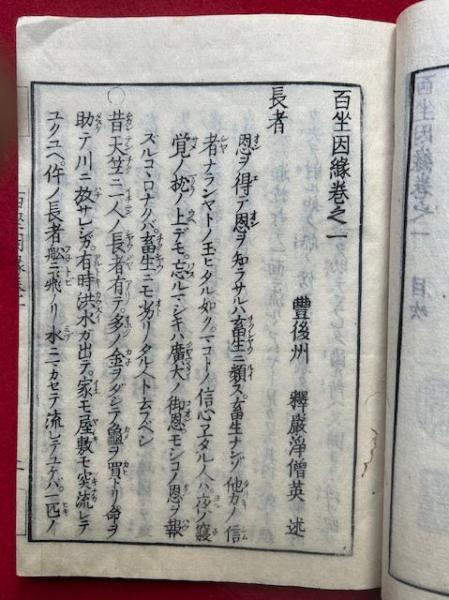 百坐因縁卷之一 目次
百坐因縁卷之一
豐後州 釋嚴淨僧英 述
長者
恩ヲ得テ恩ヲ知ラサルハ畜生ニ類ス。畜生ナンゾ他力ノ信
者ナランヤトノ玉ヒタル如ク。マコトノ信心ヱタル人ハ夜ノ寢
覺ノ枕ノ上デモ。忘ルマシキハ廣大ノ御恩。モシコノ恩ヲ報
ズルコヽロナクバ。畜生ニモ劣リタルト云ベシ
○昔天竺ニ一人ノ長者有テ。多ノ金ヲダシテ龜ヲ買トリ命ヲ
助テ川ニ放サレシガ。有時洪水ガ出テ。家モ屋敷モ突流レテ
ユクユヘ。件ノ長者舩ニ飛ノリ水ニマカセテ流レテユケバ。一匹ノ
百坐因縁卷一